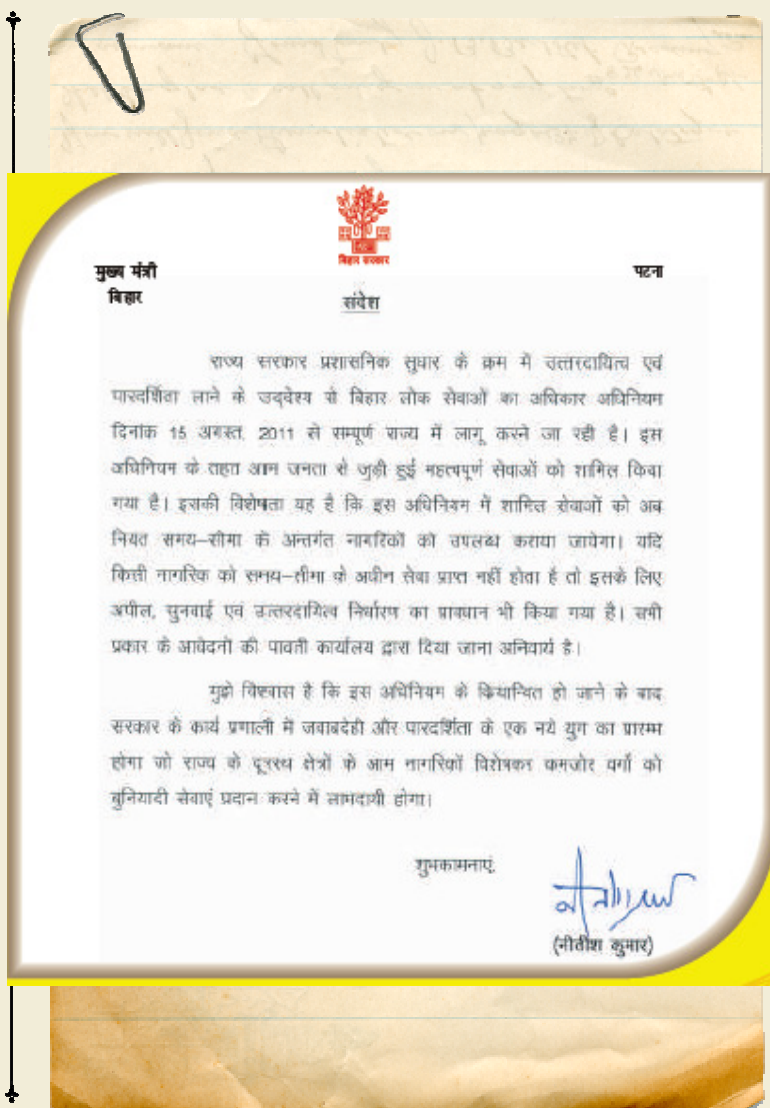 बिहार सरकार
मुख्य मंत्री
पटना
बिहार
संदेश
राज्य सरकार प्रशासनिक सुधार के क्रम में उत्तरदायित्व एवं
पारदर्शिता लाने के उद्देश्य से बिहार लोक सेवाओं का अधिकार अधिनियम
दिनांक 15 अगस्त, 2011 से सम्पूर्ण राज्य में लागू करने जा रही है। इस
अधिनियम के तहत आम जनता से जुड़ी हुई महत्वपूर्ण सेवाओं को शामिल किया
गया है। इसकी विशेषता यह है कि इस अधिनियम में शामिल सेवाओं को अब
नियत समय–सीमा के अन्तर्गत नागरिकों को उपलब्ध कराया जायेगा। यदि
किसी नागरिक को समय–सीमा के अधीन सेवा प्राप्त नहीं होता है तो इसके लिए
अपील, सुनवाई एवं उत्तरदायित्व निर्धारण का प्रावधान भी किया गया है। सभी
प्रकार के आवेदनों की पावती कार्यालय द्वारा दिया जाना अनिवार्य है।
मुझे विश्वास है कि इस अधिनियम के क्रियान्वित हो जाने के बाद
सरकार के कार्य प्रणाली में जवाबदेही और पारदर्शिता के एक नये युग का प्रारम्भ
होगा जो राज्य के दूरस्थ क्षेत्रों के आम नागरिकों विशेषकर कमजोर वर्गों को
बुनियादी सेवाएं प्रदान करने में लाभदायी होगा।
शुभकामनाएं,
(नीतीश कुमार)